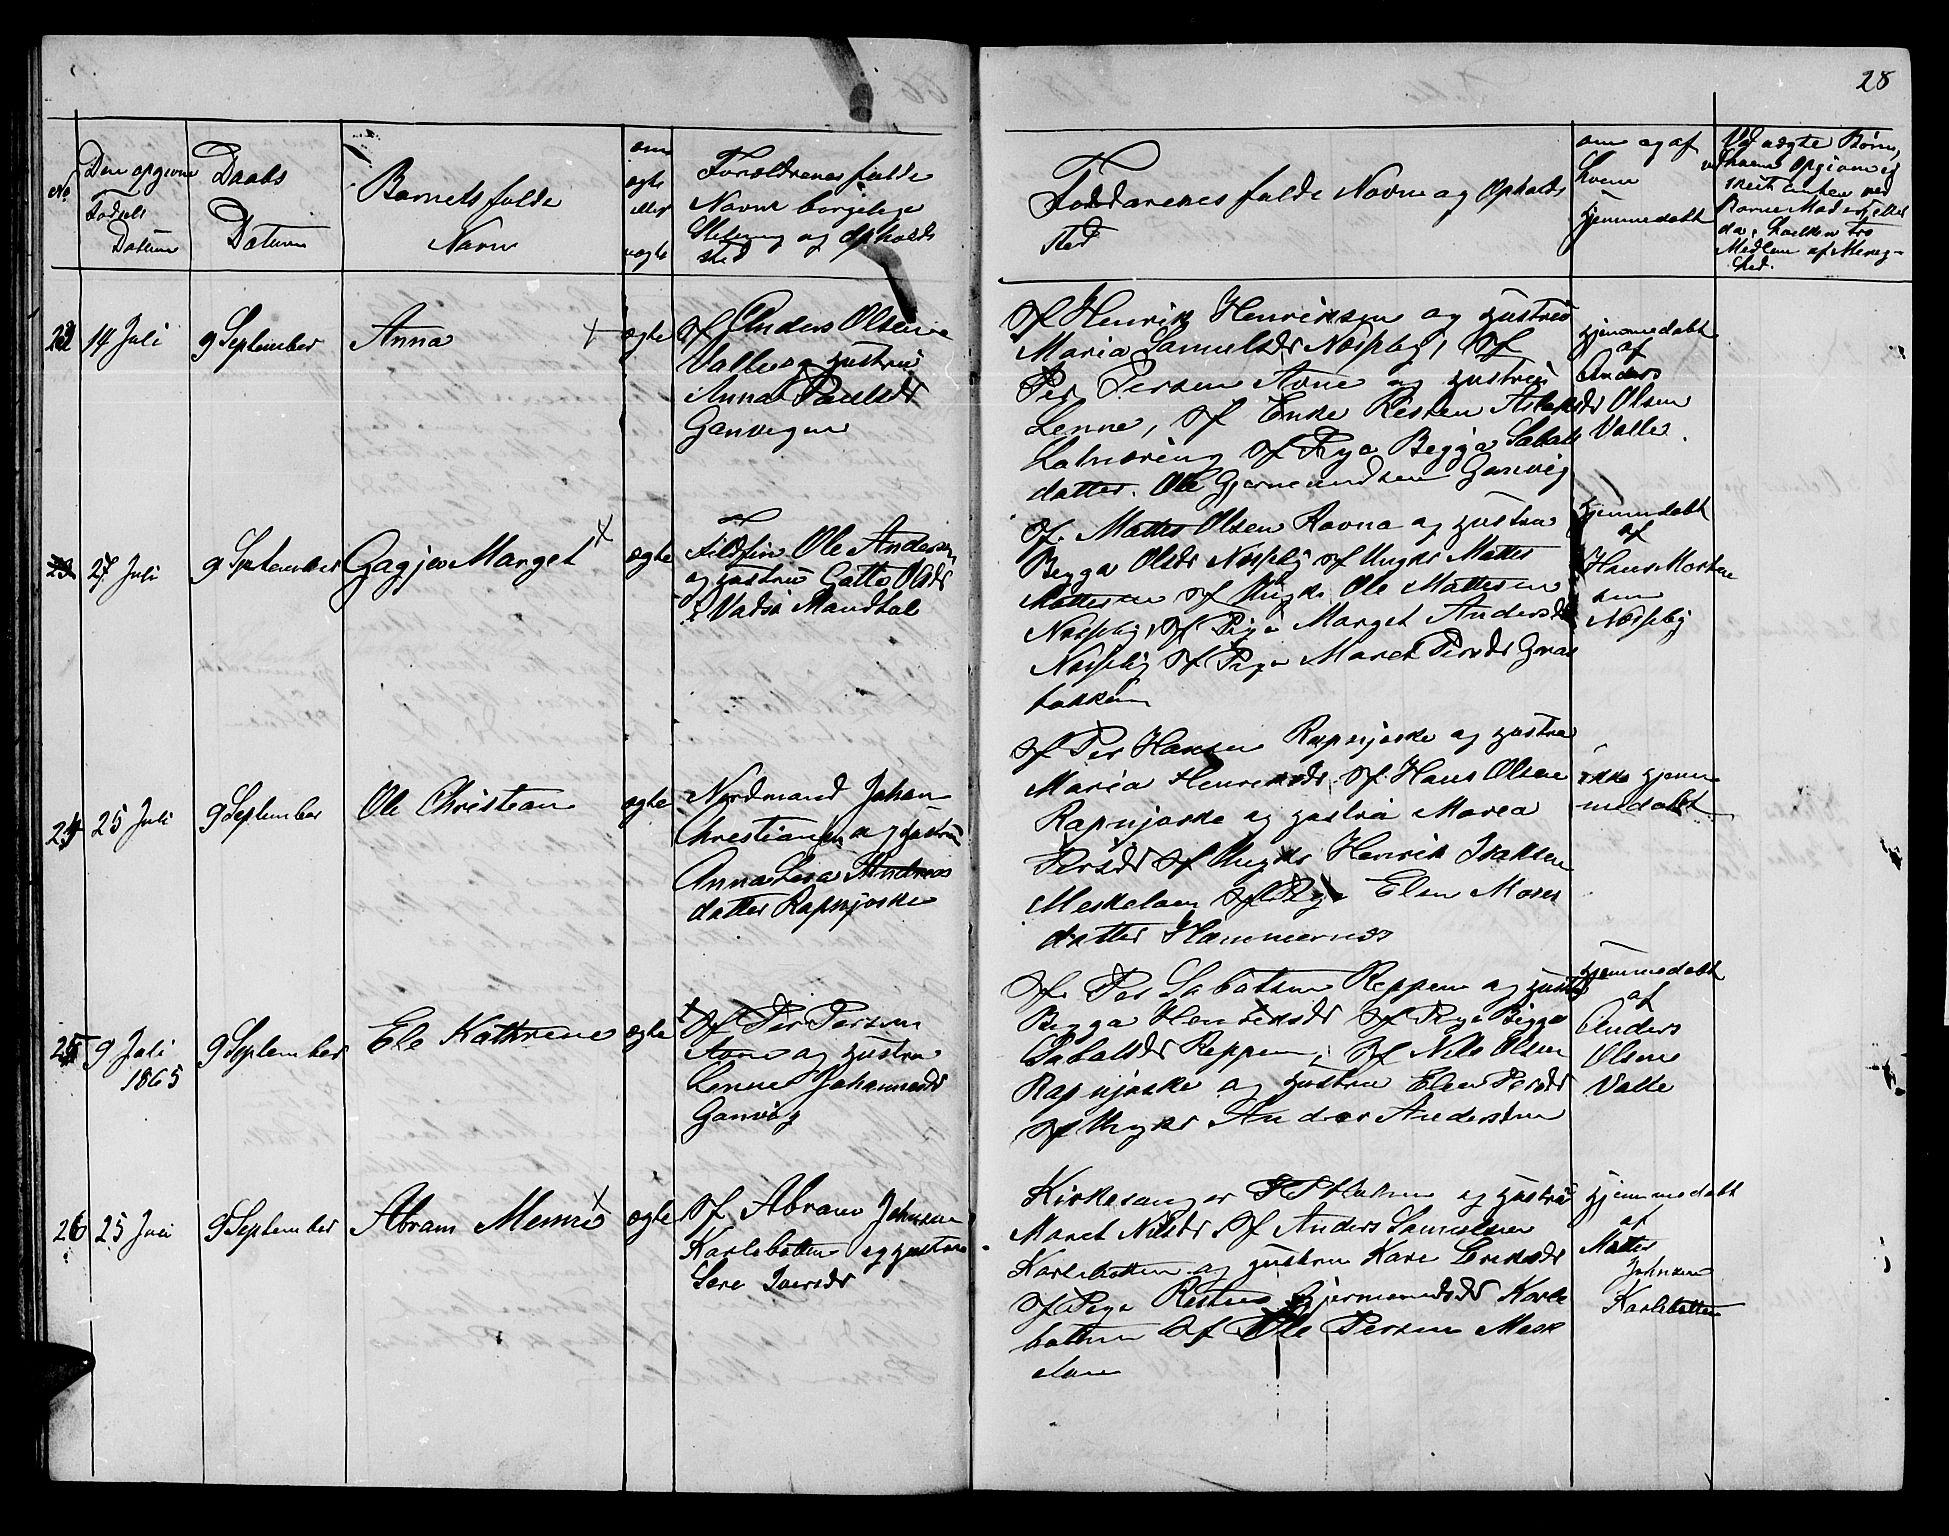 28
No
Den opgivne
Fødsels
Datum
Daabs
Datum
Barnets fulde
Navn
om
ægte
eller
uægte
Forældrenes fulde
Navne borgelige
Stilling og Opholds
sted
Faddernes fulde Navne og Opholds
sted
om og af
hvem
hjemmedøbt
Ved uægte Børn,
14 Juli
9 September
Anna
ægte
Sf Anders Olsen
Valle og Hustru
Anna Paulsdr
Ganvigen
Sf Henrik Henriksen og Hustru
Maria Samulsdr Næsseby, Sf
Per Persen Aone og Hustru
Lenne, Sf Enke Resten Aslaksdr
Sf Pige Begga Sabals
datter. Ole Gjermundsen Ganvig
hjemmedøbt
af
Anders
Olsen
Valle.
27 Juli
9 September
Gagja Marget
ægte
Ole Andersen
og Hustru Gatto Olsdr
i Vadsø Mandtal
Sf. Mattis Olsen Ravna og Hustru
Begga Olsdr Næsseby Sf Ungkr Mattis
Mattisen Sf Ungkr Ole Mattisen
Næsseby, Sf Pige Marget Andersdr
Næsseby Sf Pige Maret Persdr Gnas
bakken
hjemmedøbt
af
Hans Morten
sen
Næsseby
24
25 Juli
9 September
Ole Christian
ægte
Nordmand Johan
Christiansen og Hustru
Anna Lova Andreas
datter Rapnjaske
Sf Per Hansen Rapnjaske og Hustru
Maria Henriksdr Sf Hans Olsen
Rapnjaske og Hustru Marea
Persdr Sf Ungkr Henrik Isaksen
Meskelven Sf Pige Elen Moses
datter Hammernes
ikke hjem
medøbt
25
9 Juli
1865
9 September
Ele Kathrine
ægte
Sf Per Persen
Aone og Hustru
Lenne Johannesdr
Ganvig
Sf. Per Sabalsen Reppen og Hustru
Begga Henriksdr Sf Pige Begga
Sabalsdr Reppen, Sf Nils Olsen
Rapnjaske og Hustru Elen Persdr
Sf Ungkr Anders Andersen
hjemmedøbt
af
Anders
Olsen
Valle
26
25 Juli
9 September
Abram Menni
ægte
Sf Abram Johnsen
Karlebotten og Hustru
Sara Iversdr
Kirkesanger og Hustru
Maret Nilsdr, Sf Anders Samulsen
Karlebotten og Hustru Kare Eriksdr
Sf Pige Resten Gjermundsdr Karle
botten Sf Ole Persen Mesk
elven
hjemmedøbt
af
Mattis
Johnsen
Karlebotten